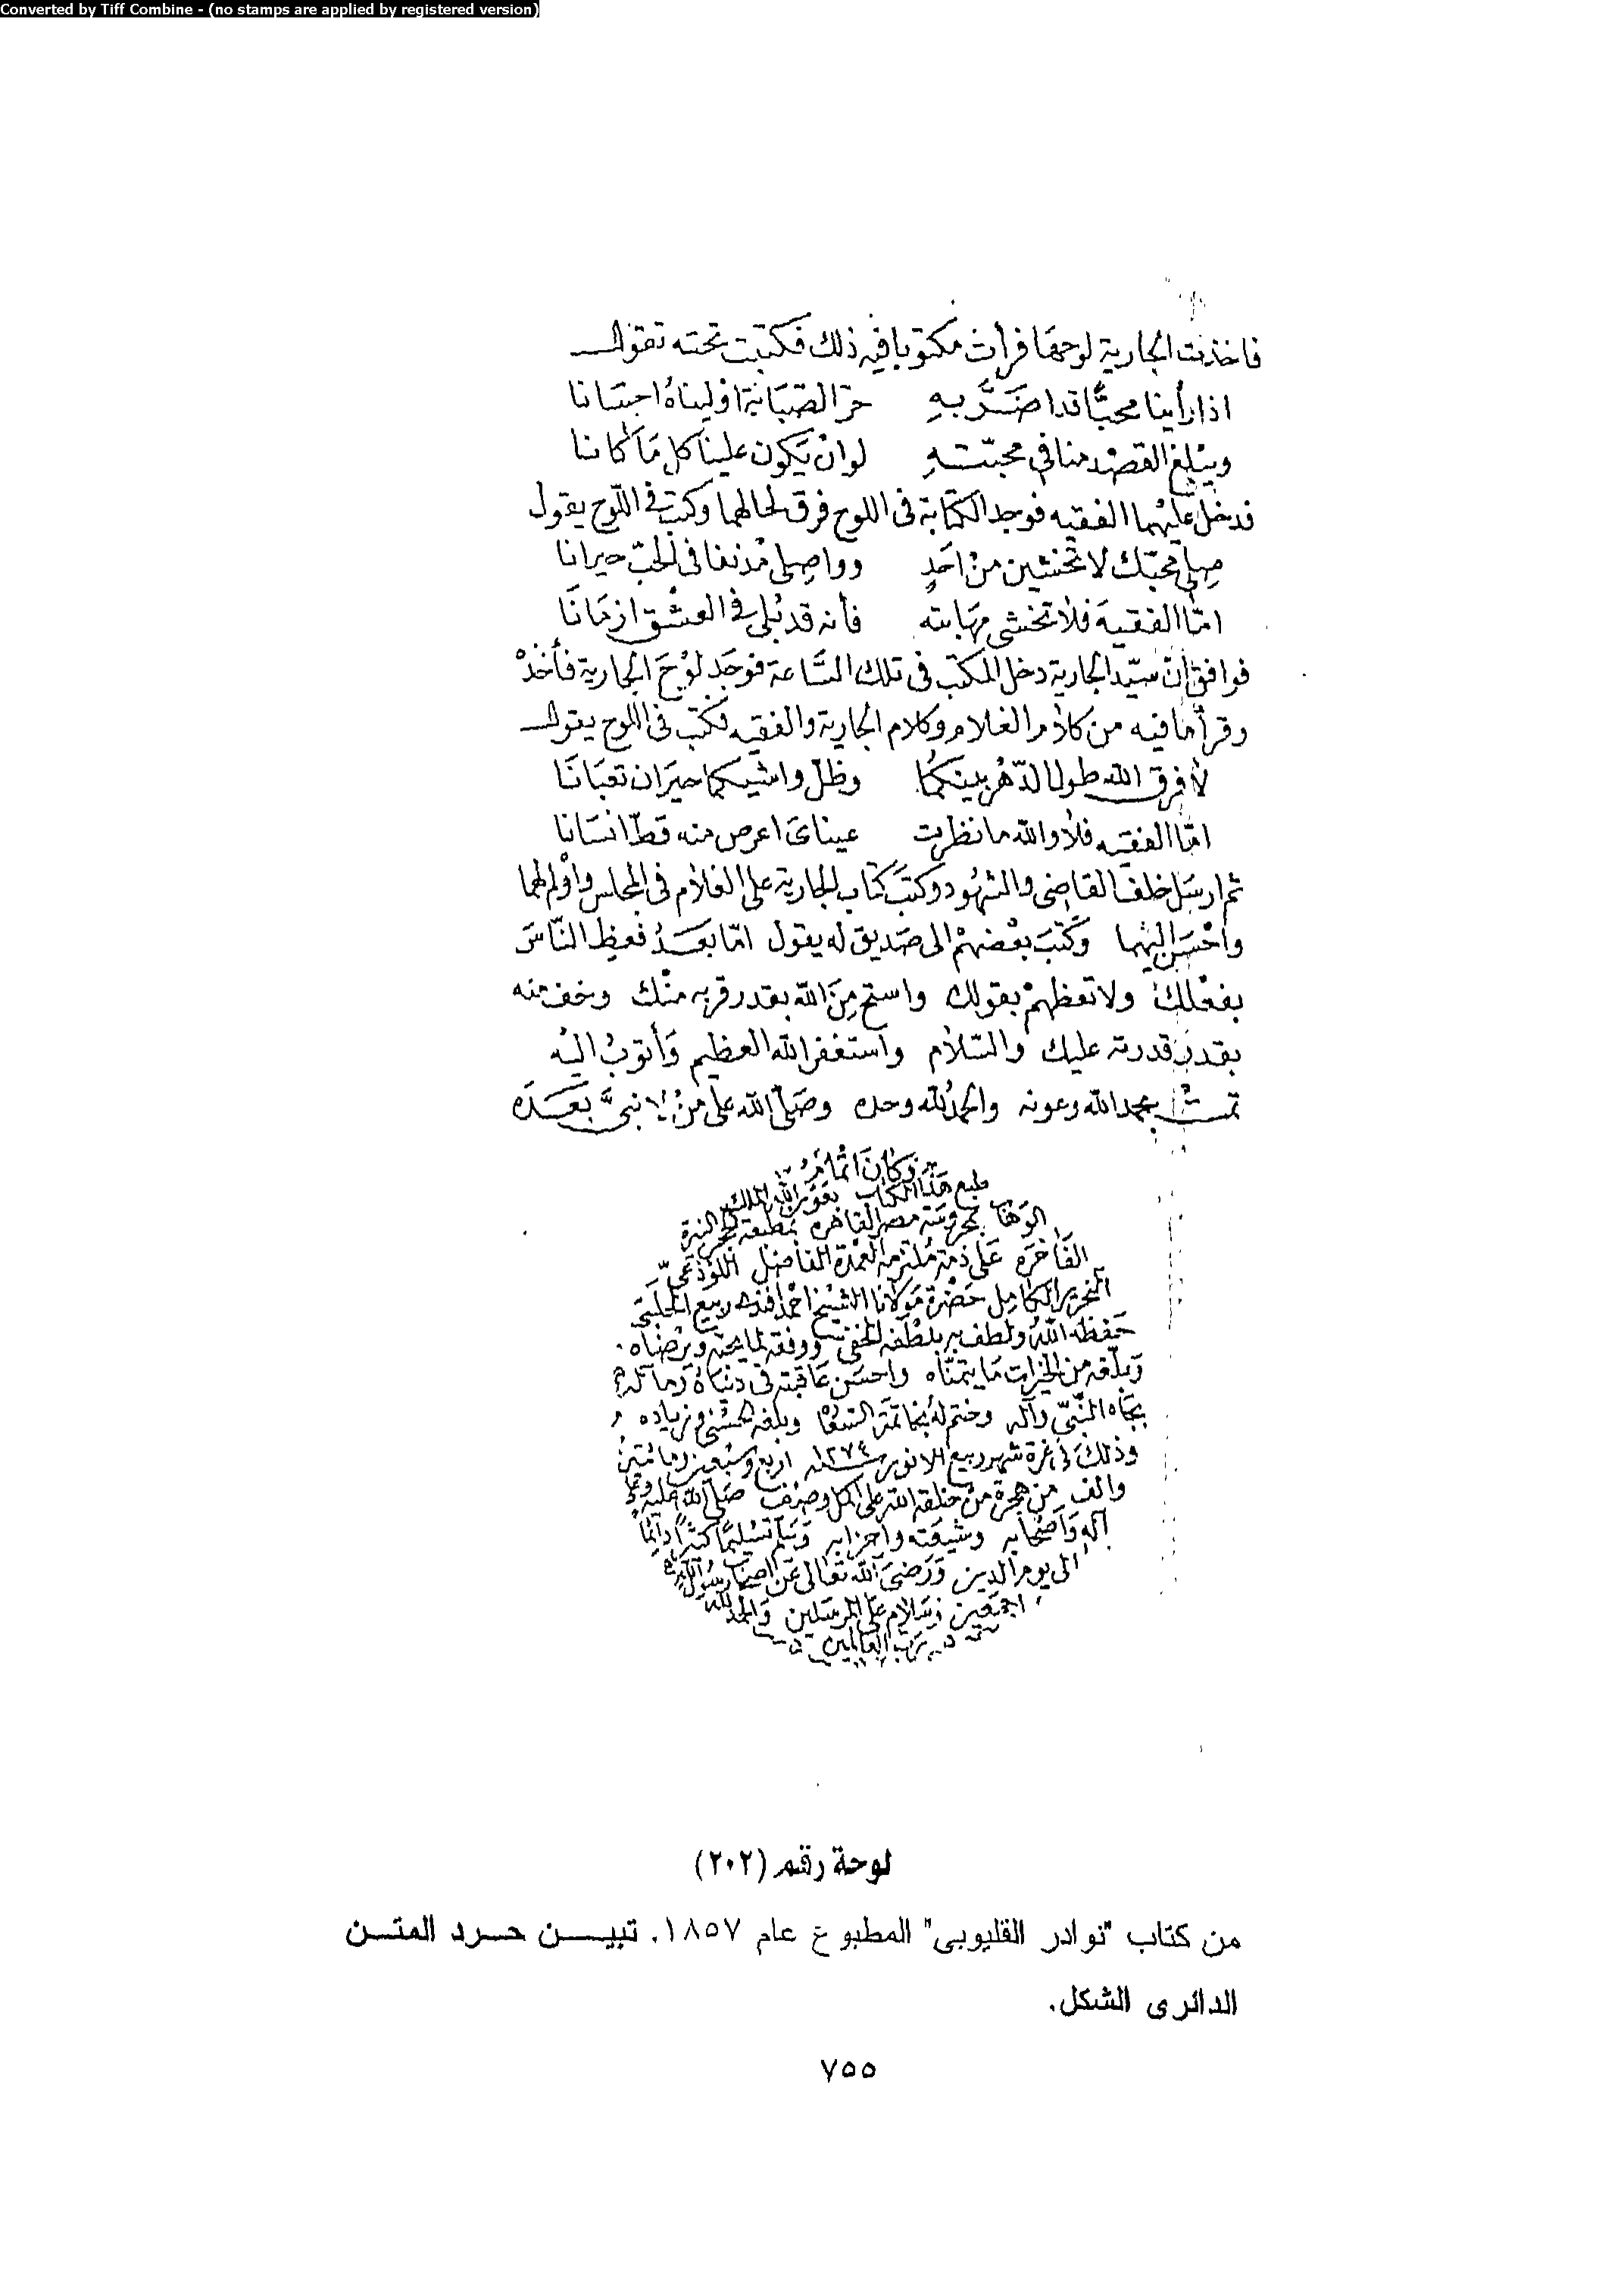 Converted by Tiff Combine - (no stamps are applied by registered version)
فاخذت الجارية لوحها فرأت مكتوبا فيه ذلك فكتبت تحته تقول
اذا رأينا محبًّا قد اضَرَّ بهِ حرّ الصبَابَة اوليناهُ احسَانا
ويبْلغ القصْد منا في محبّتهِ لو انْ يَكون علينَا كل مَا كانا
فدخل عليْهما الفقيه فوجد الكتابة فى اللوح فرق لحالهما وكتب فى اللّوح يقول
صِلى محبّك لا تخشين منْ احَدٍ وواصِلى مُدنفا فى الحبّ حيرانا
امّا الفقيهَ فلا تخشى مهَابته فأنه قد بُلى فى العشْق ازمَانَا
فوافق انّ سيّد الجارية دخل المكتب فى تلك السَّاعة فوجَد لوْحَ الجارية فأخذهْ
وقرأ ما فيه من كلام الغلام وكلام الجارية والفقيه فكتب فى اللوح يقول
لا فرق الله طول الدّهْر بينكمَا وظلّ واشيكما حيرَان تعبَانَا
امّا الفقيه فلا والله ما نظرت عيناىَ اعرص منه قطّ انسَانا
ثم ارسَل خلف القاضى والشهُود وكتبَ كتاب الجارية على الغلام فى المجلس واوْلم لهما
واحْسَن اليْهما وكتبَ بعْضهمْ الى صَديق له يقول امّا بعَدُ فعظِ النّاسَ
بفعْلك ولا تعظهمْ بقولك واستح مِنَ الله بقدر قربه منْك وخف منه
بقدر قدرته عليك والسّلام واستغفر الله العظيم وَأتوبُ اليْه
تمت بحمد الله وعونه والحمدُ لله وحده وصَلّى الله على منْ لا نبىّ بعَدَه
وكانَ اتمام
طبع هَذا الكتاب بعَوْن الله الملك
الوَهّاب بمحروسَة مصر القاهره بمطبعة
الفَاخرَه عَلى ذمة مُلتزمه العمْدة الفاضل اللوْذعىّ
النحرير الكامِل حَضْرة مَولانا الشيْخ احمد افندى ربيع الحلبَىّ
حَفظه اللهُ ولطف به بلطْفه الخفىّ ووفقه لما يحبّه ويرْضاه
وَبلّغه من الخيرات مَا يتمنّاه واحسَن عَاقبته فى دنيَاهُ ومآله
بجَاه النّبىّ وآله وختم لهُ بخاتمَة السّعَادة وبلغه الحسْنى وزياده
وَذلكَ فى غرة شهر ربيع الانور سنه ١٢٧٤ اربع وسَبْعين ومائتين
والف من هجرة منْ خلقه الله على اكمل وصْف صَلى الله عليْه وعلى
آله وَأصْحَابه وشيعَته واحزابه وَسَلم تسْليمًا كثيرًا دَائمًا
الى يوم الدين وَرَضىَ الله تعَالى عَنْ اصحَاب رسُول الله
اجمَعين وسَلام على المرسَلين وَالحمْد لله
رَبّ العَالمين
لوحة رقم (٢٠٢)
من كتاب "نوادر القليوبى" المطبوع عام ١٨٥٧. تبيــــن حــرد المتــن
الدائرى الشكل.
٧٥٥